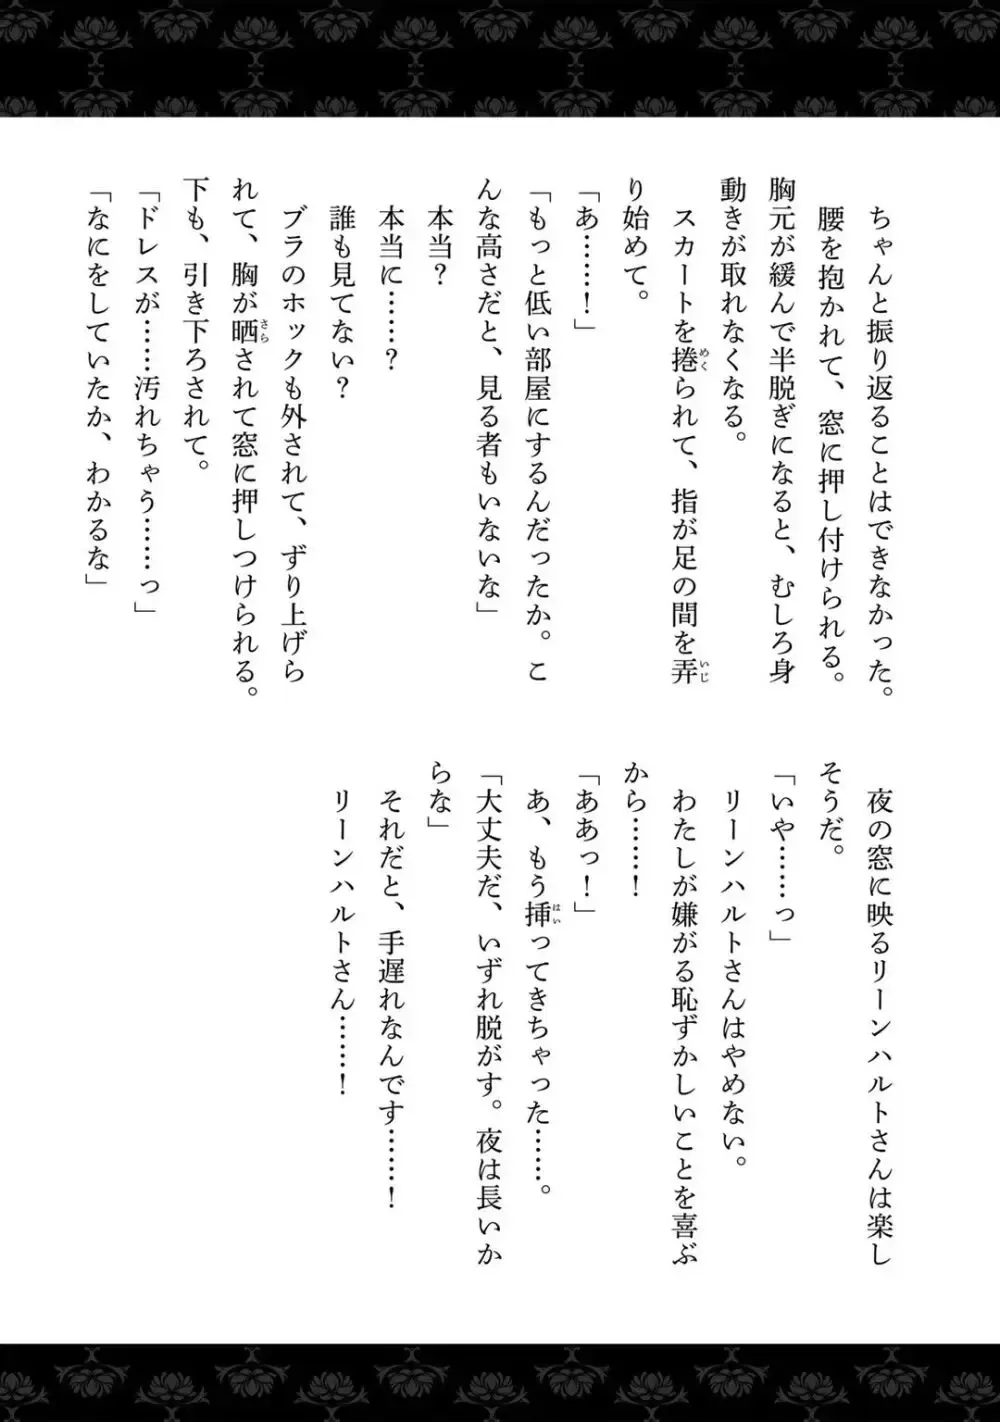 ちゃんと振り返ることはできなかった。
腰を抱かれて、窓に押し付けられる。
胸元が緩んで半脱ぎになると、むしろ身
動きが取れなくなる。
スカートを捲られて、指が足の間を弄
り始めて。
「あ……！」
「もっと低い部屋にするんだったか。こ
んな高さだと、見る者もいないな」
本当？
本当に……？
誰も見てない？
ブラのホックも外されて、ずり上げら
れて、胸が晒されて窓に押しつけられる。
下も、引き下ろされて。
「ドレスが……汚れちゃう……っ」
「なにをしていたか、わかるな」
夜の窓に映るリーンハルトさんは楽し
そうだ。
「いや……っ」
リーンハルトさんはやめない。
わたしが嫌がる恥ずかしいことを喜ぶ
から……！
「ああっ！」
あ、もう挿ってきちゃった……。
「大丈夫だ、いずれ脱がす。夜は長いか
らな」
それだと、手遅れなんです……！
リーンハルトさん……！